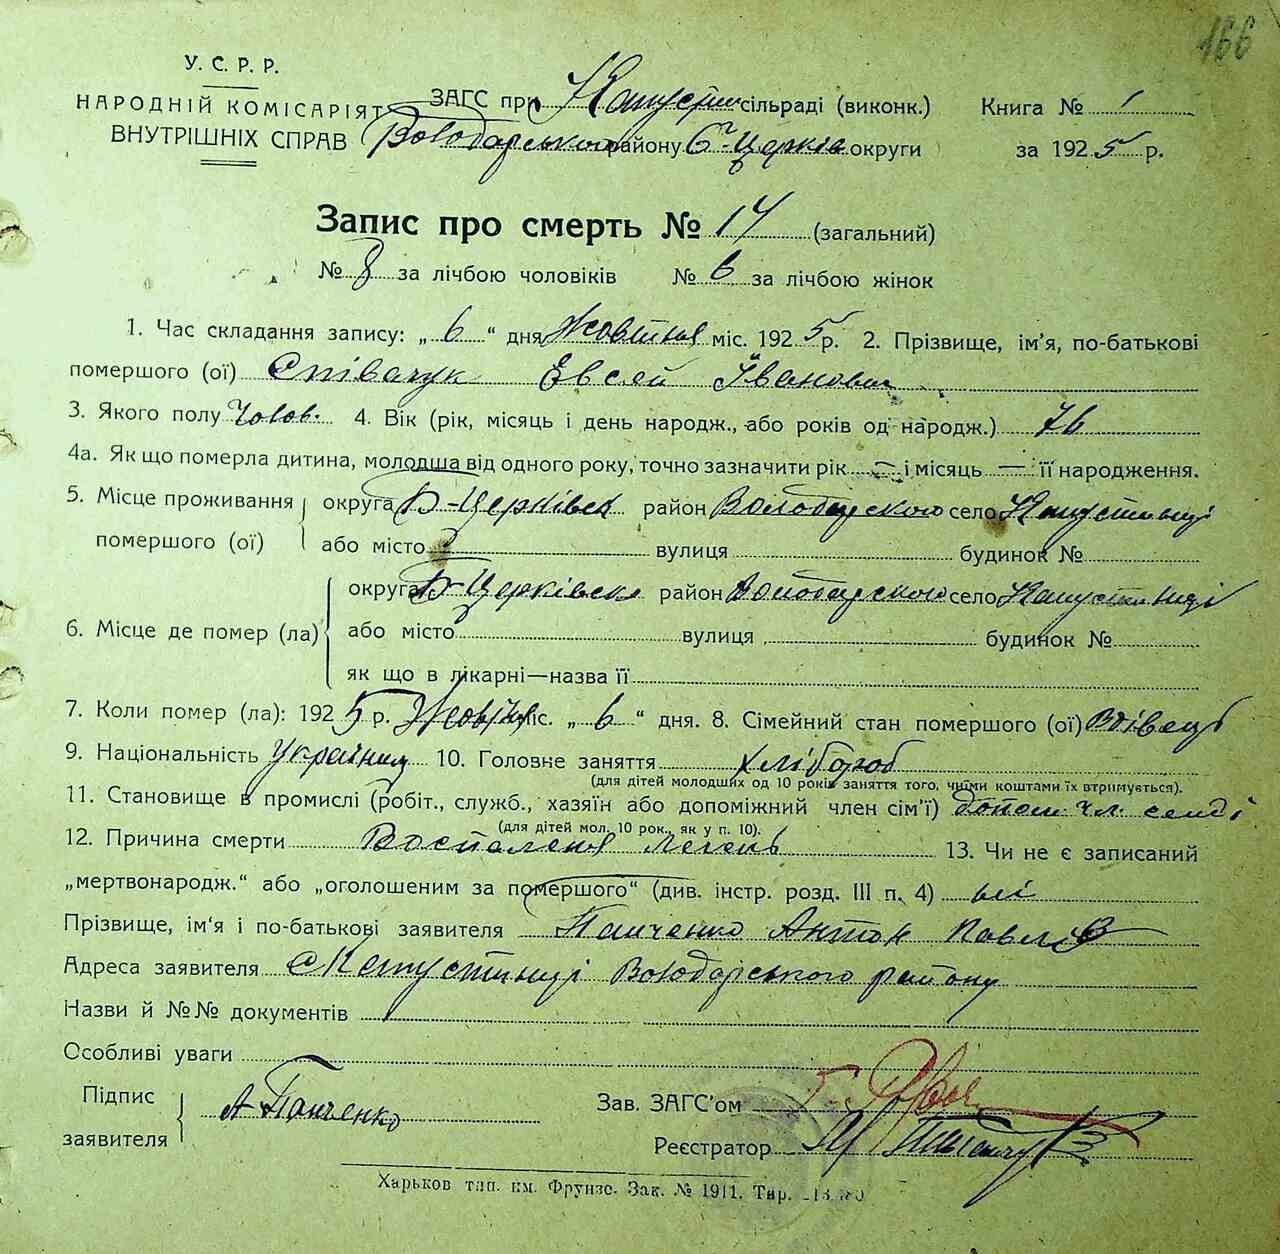 166
У. С. Р. Р.
НАРОДНІЙ КОМІСАРІЯТ
ВНУТРІШНІХ СПРАВ
ЗАГС при Капустин сільраді (виконк.)
Володарського району Б-Церків округи
Книга № 1
за 1925 р.
Запис про смерть № 14 (загальний)
№ 8 за лічбою чоловіків № 6 за лічбою жінок
1. Час складання запису: „ 6 “ дня Жовтня міс. 1925 р. 2. Прізвище, ім’я, по-батькові
помершого (ої) Співачук Евсей Іванович
3. Якого полу Чолов. 4. Вік (рік, місяць і день народж., або років од народж.) 76
4а. Як що померла дитина, молодша від одного року, точно зазначити рік — і місяць — її народження.
5. Місце проживання помершого (ої) округа Б-Церківск район Володарского село Капустинці
або місто вулиця будинок №
6. Місце де помер (ла) округа Б-Церківск район Володарского село Капустинці
або місто вулиця будинок №
як що в лікарні—назва її
7. Коли помер (ла): 1925 р. Жовтня міс. „ 6 “ дня. 8. Сімейний стан помершого (ої) Вдівець
9. Національність Українец 10. Головне заняття хлібороб
(для дітей молодших од 10 років заняття того, чиїми коштами їх втримується).
11. Становище в промислі (робіт., служб., хазяїн або допоміжний член сім’ї) допом. чл. семді
(для дітей мол. 10 рок., як у п. 10).
12. Причина смерти Воспаленя легень 13. Чи не є записаний
„мертвонародж.“ або „оголошеним за помершого“ (див. інстр. розд. III п. 4) ні
Прізвище, ім‘я і по-батькові заявителя Панченко Антон Павлів
Адреса заявителя с Капустинці Володарського району
Назви й №№ документів
Особливі уваги
Підпис заявителя А Панченко
Зав. ЗАГС’ом
Реєстратор
Харьков тип. им. Фрунзе. Зак. № 1911. Тир.